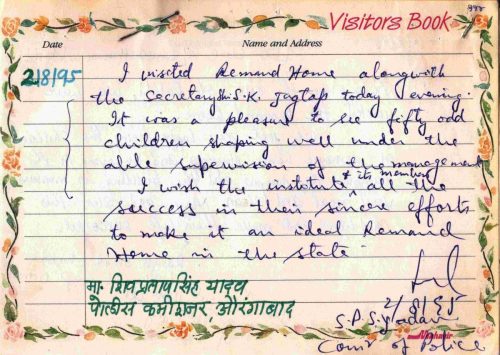 Visitors Book
Date Name and Address
2/8/95 I visited Remand Home alongwith
the Secretary Shri S.K. Jagtap today evening.
It was a pleasure to see fifty odd
children shaping well under the
able supervision of the management
I wish the institute & its members all the
success in their sincere efforts
to make it an ideal Remand
Home in the state
मा. शिवप्रतापसिंह यादव
पोलीस कमीशनर औरंगाबाद
2/8/95
S.P.S. Yadav
Comr of Police